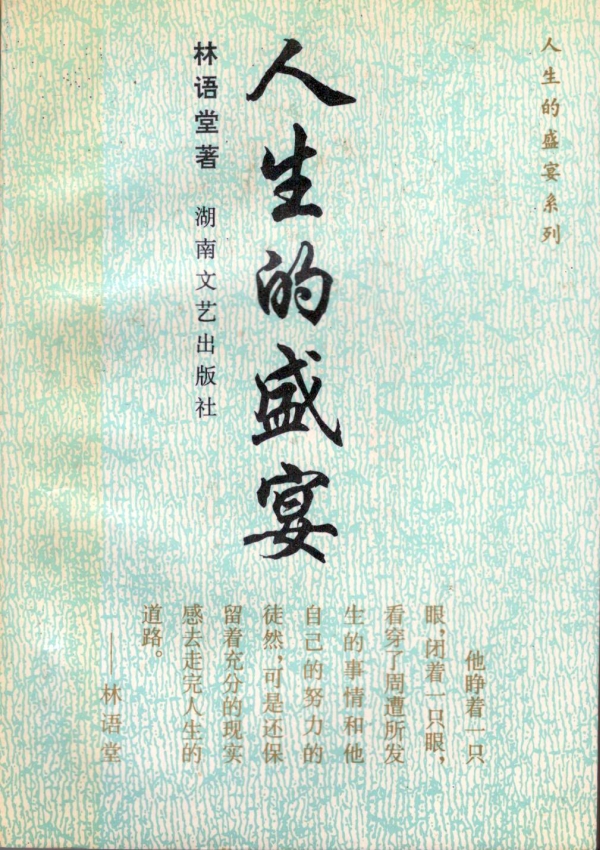 人生的盛宴系列
人生的盛宴
林语堂著 湖南文艺出版社
他睁着一只
眼，闭着一只眼，
看穿了周遭所发
生的事情和他
自己的努力的
徒然，可是还保
留着充分的现实
感去走完人生的
道路。
——林语堂